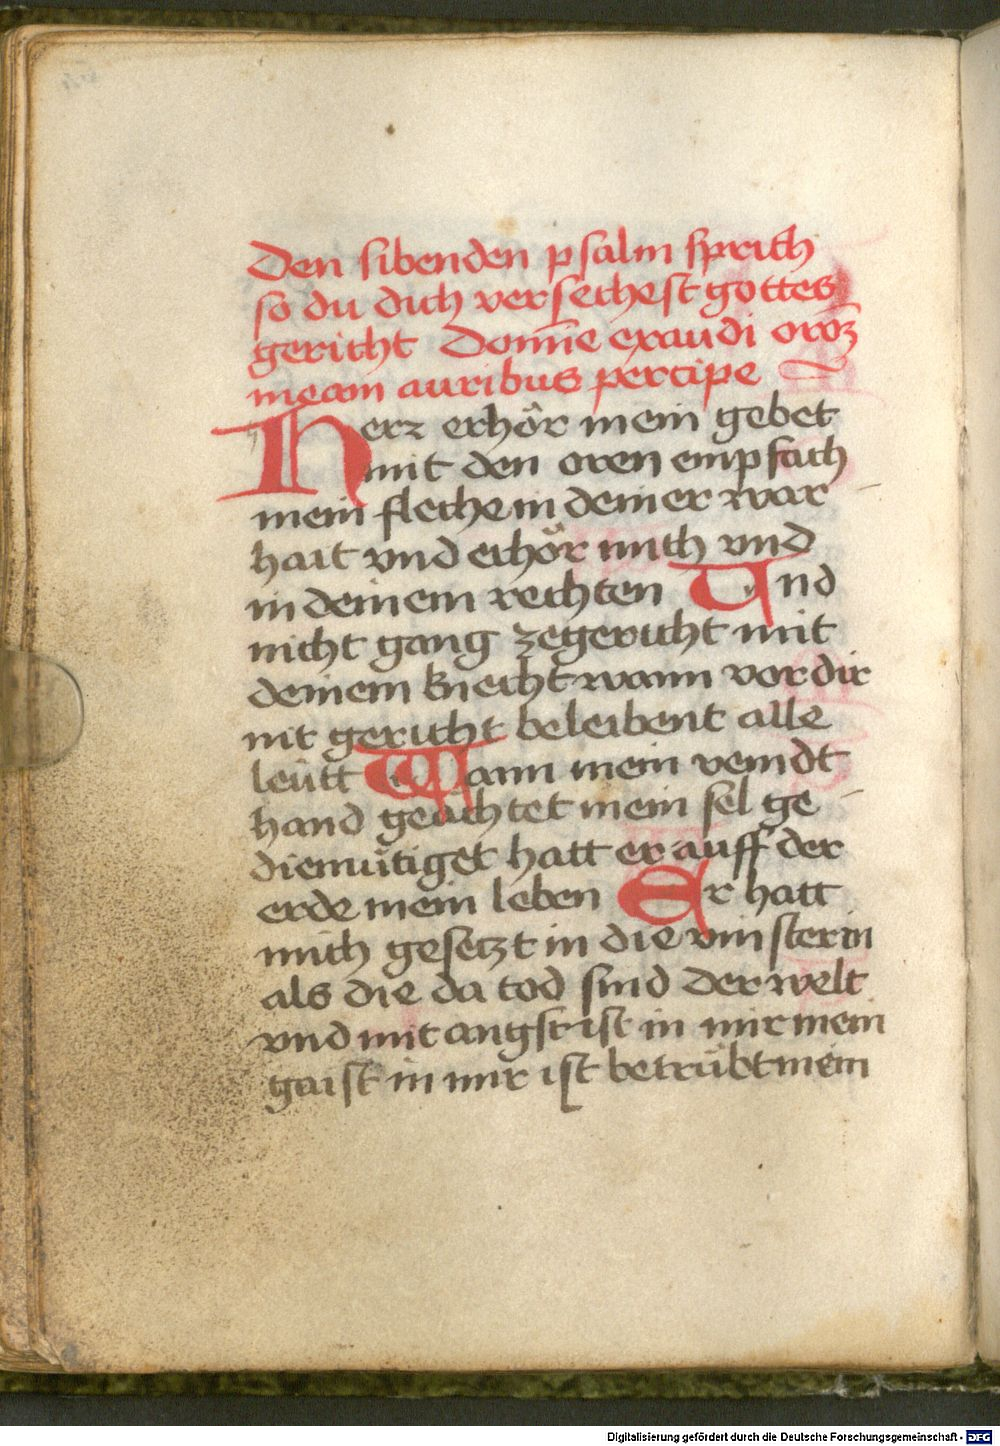 Den sibenden psalm sprich
so du dich versechest gottes
gericht Domīe exaudi oroꝫ
meam auribus percipe
Herz erhör mein gebet
mit den oren empfach
mein fleche in deiner war
hait vnd erhör mich vnd
in deinem rechten Vnd
nicht gang zegericht mit
deinem knecht wann vor dir
nit gericht beleibent alle
leütt Wann mein veindt
hand geächtet mein sel ge
diemütiget hatt er auff der
erde mein leben Er hatt
mich gesetzt in die vinsterin
als die da tod sind der welt
vnd mit angst ist in mir mein
gaist in mir ist betrübt mein
Digitalisierung gefördert durch die Deutsche Forschungsgemeinschaft - DFG